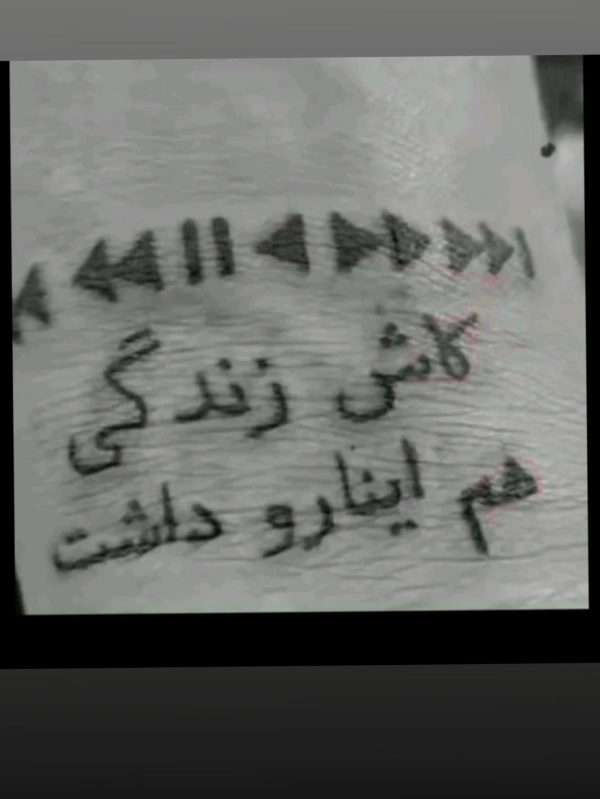 کاش زندگی
هم اینارو داشت